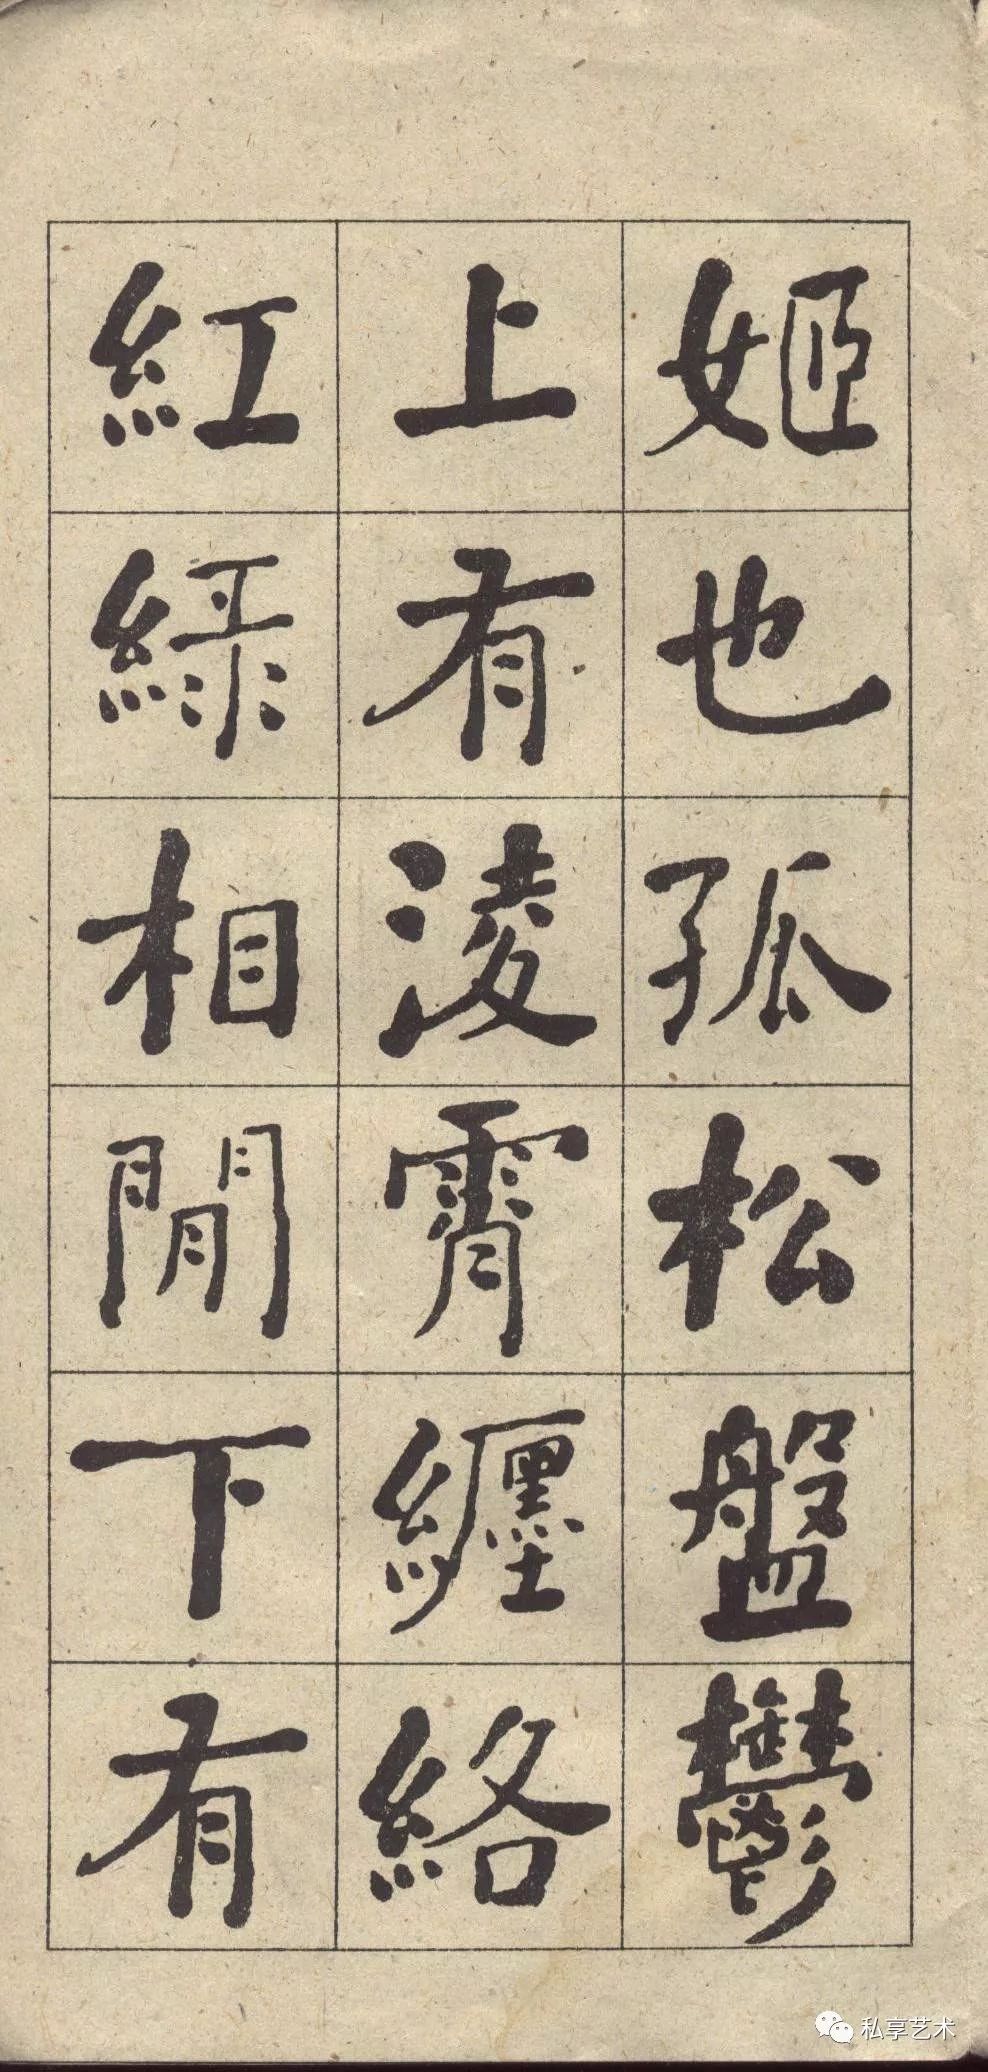 姬也孤松盤鬱
上有淩霄纏絡
紅緑相間下有
私享艺术